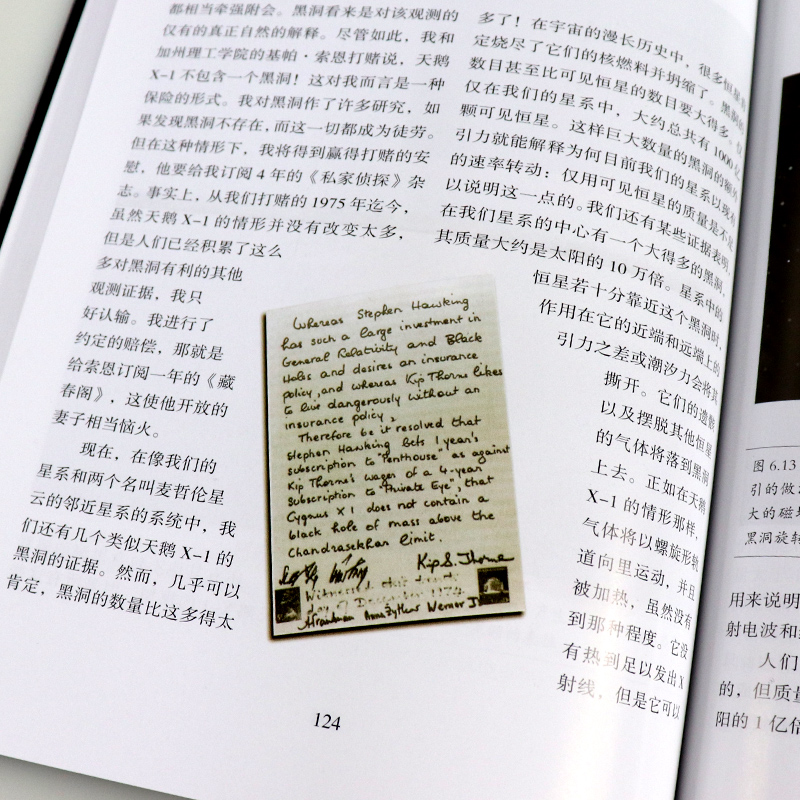 都相当牵强附会。黑洞看来是对该观测的
仅有的真正自然的解释。尽管如此，我和
加州理工学院的基帕·索恩打赌说，天鹅
X-1不包含一个黑洞！这对我而言是一种
保险的形式。我对黑洞作了许多研究，如
果发现黑洞不存在，而这一切都成为徒劳。
但在这种情形下，我将得到赢得打赌的安
慰，他要给我订阅4年的《私家侦探》杂
志。事实上，从我们打赌的1975年迄今，
虽然天鹅X-1的情形并没有改变太多，
但是人们已经积累了这么
多对黑洞有利的其他
观测证据，我只
好认输。我进行了
约定的赔偿，那就是
给索恩订阅一年的《藏
春阁》，这使他开放的
妻子相当恼火。
现在，在像我们的
星系和两个名叫麦哲伦星
云的邻近星系的系统中，我
们还有几个类似天鹅X-1的
黑洞的证据。然而，几乎可以
肯定，黑洞的数量比这多得太
Whereas Stephen Hawking
has such a large investment in
General Relativity and Black
Holes and desires an insurance
policy, and whereas Kip Thorne likes
to live dangerously without an
insurance policy,
Therefore be it resolved that
Stephen Hawking bets 1 year's
subscription to "Penthouse" as against
Kip Thorne's wager of a 4-year
subscription to "Private Eye", that
Cygnus X1 does not contain a
black hole of mass above the
Chandrasekhar limit.
Kip S. Thorne
Witnessed this tenth
day of December 1974
Anna Żytkow Werner
多了！在宇宙的漫长历史中，很多恒星肯
定烧尽了它们的核燃料并坍缩了。黑洞的
数目甚至比可见恒星的数目要大得多。仅
仅在我们的星系中，大约总共有1000亿
颗可见恒星。这样巨大数量的黑洞的额外
引力就能解释为何目前我们的星系以现有
的速率转动：仅用可见恒星的质量是不足
以说明这一点的。我们还有某些证据表明，
在我们星系的中心有一个大得多的黑洞，
其质量大约是太阳的10万倍。星系中的
恒星若十分靠近这个黑洞时，
作用在它的近端和远端上的
引力之差或潮汐力会将其
撕开。它们的遗骸
以及摆脱其他恒星
的气体将落到黑洞
上去。正如在天鹅
X-1的情形那样，
气体将以螺旋形轨
道向里运动，并且
被加热，虽然没有
到那种程度。它没
有热到足以发出X
射线，但是它可以
124
图6.13
引的做
大的磁
黑洞旋转
用来说明
射电波和
人们
的，但质量
阳的1亿倍